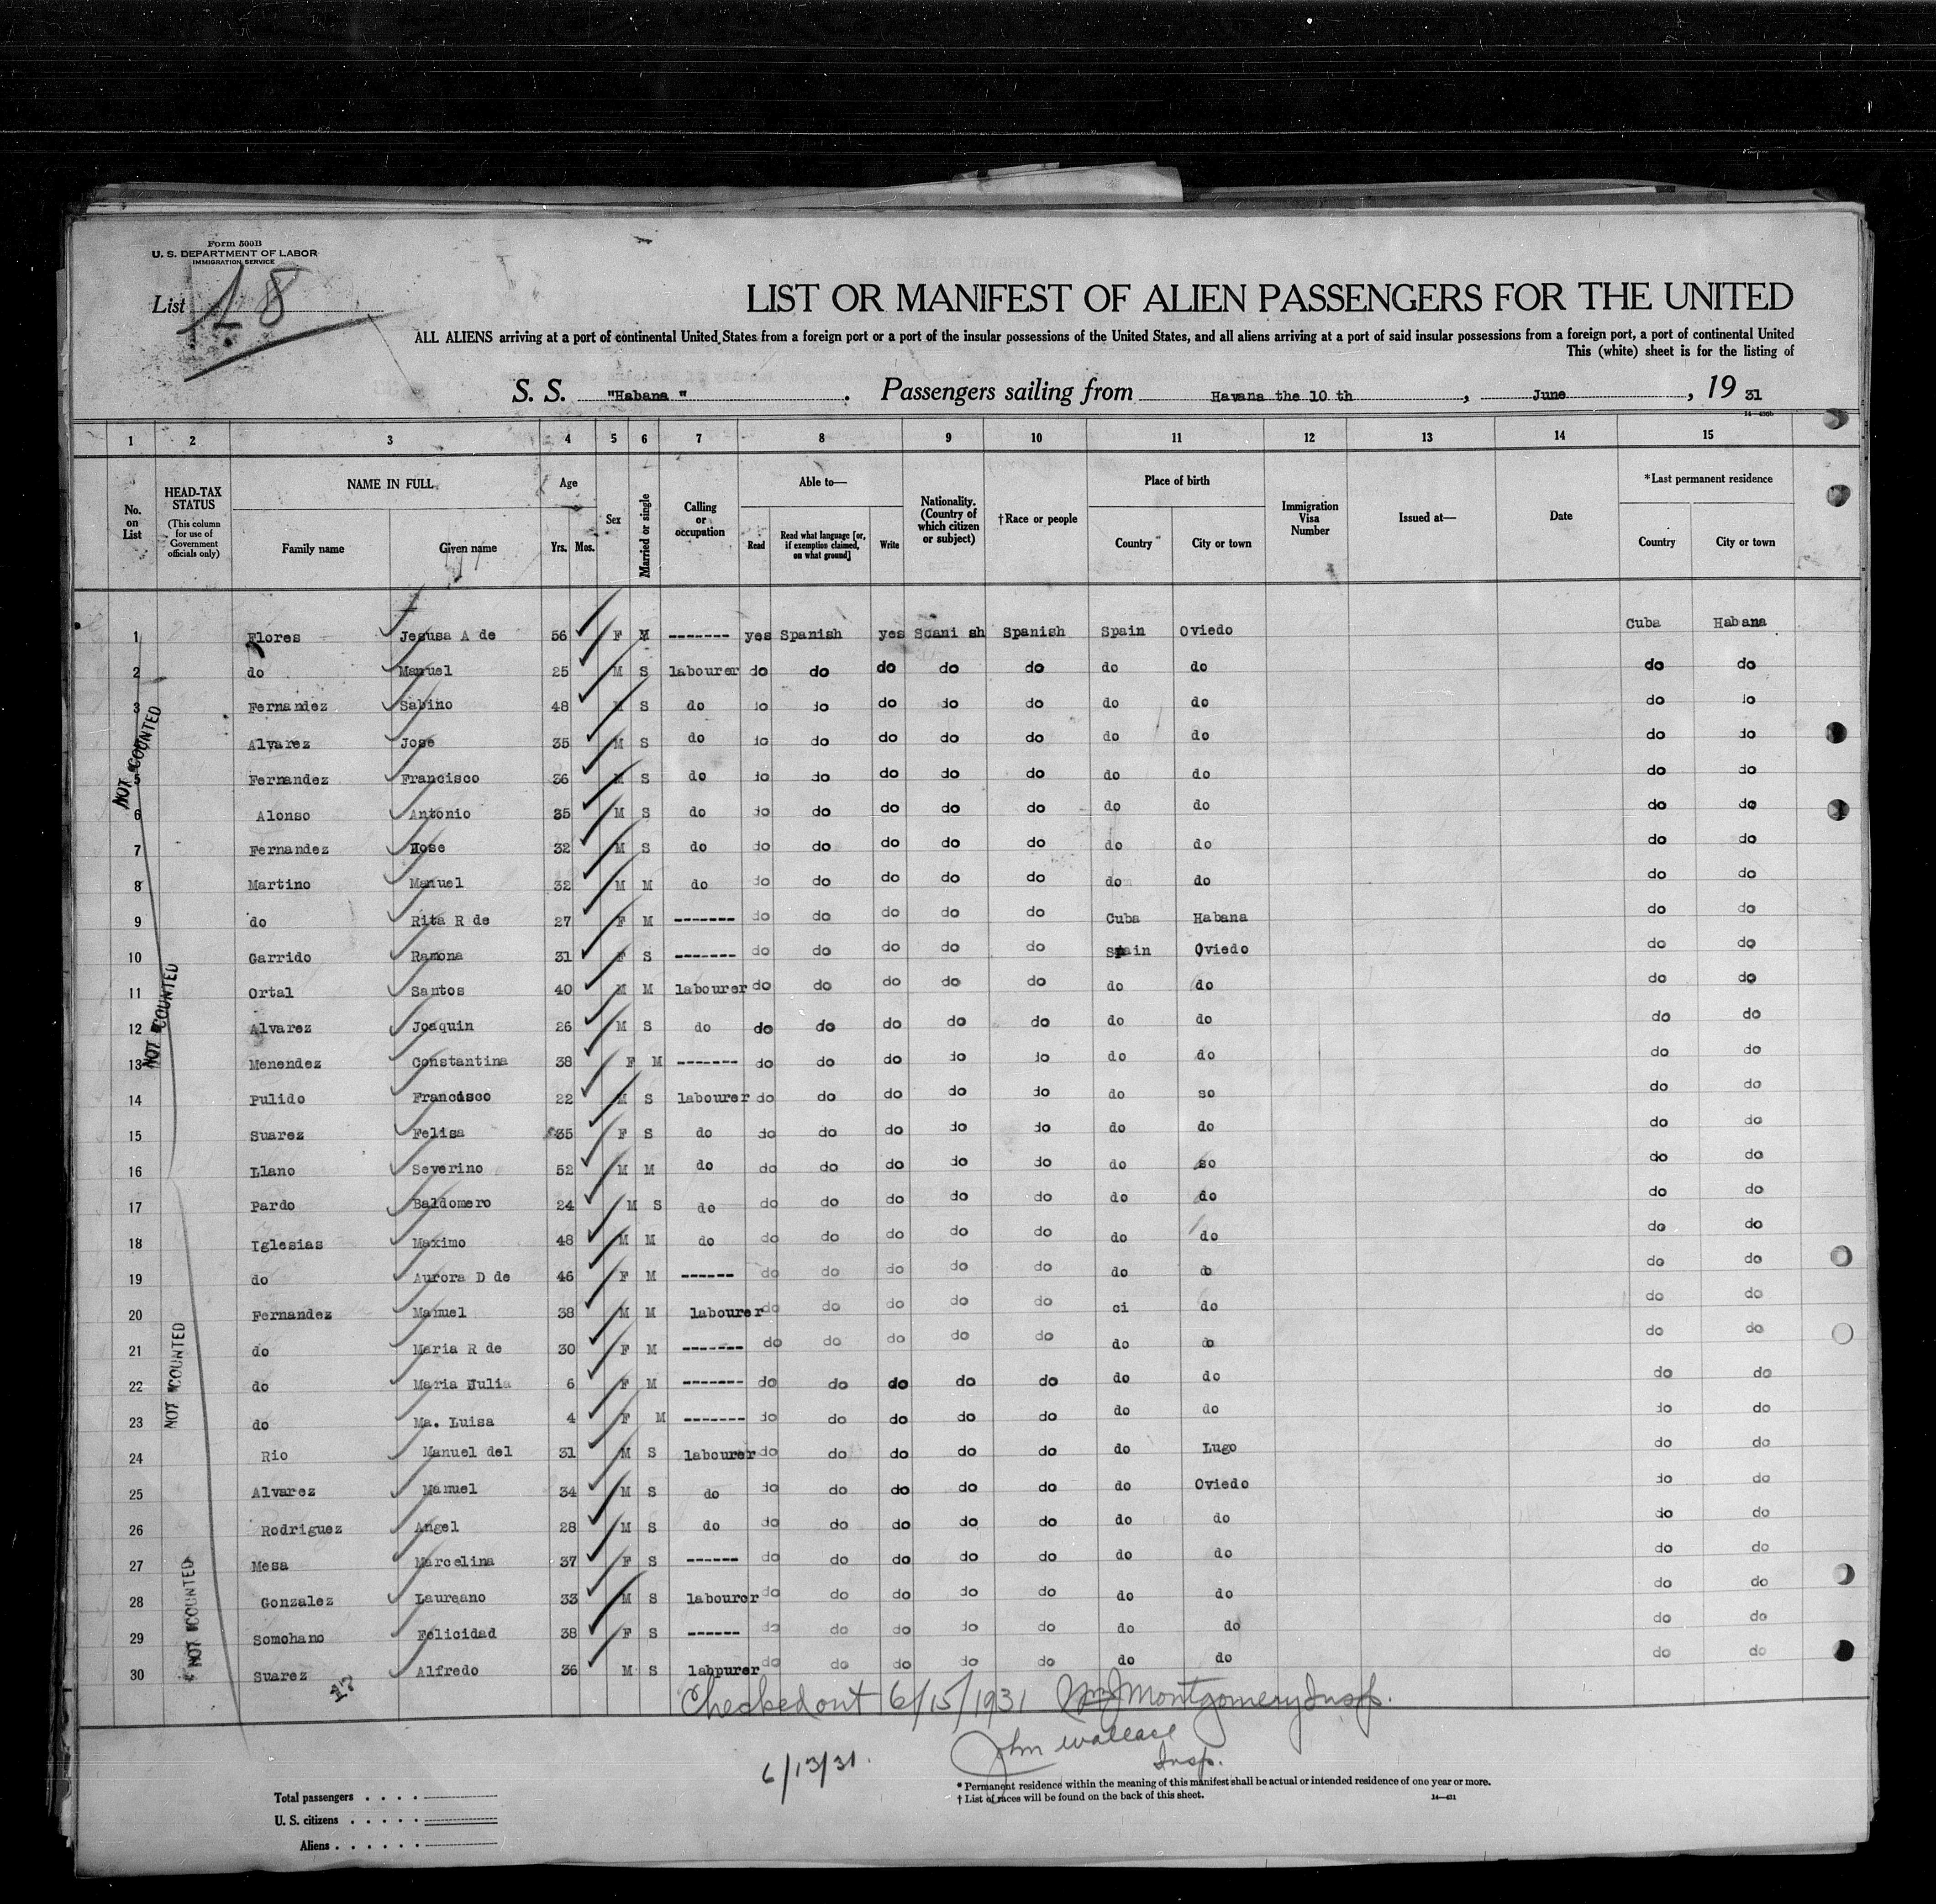 Form 500B
U. S. DEPARTMENT OF LABOR
IMMIGRATION SERVICE
List 18
LIST OR MANIFEST OF ALIEN PASSENGERS FOR THE UNITED
ALL ALIENS arriving at a port of continental United States from a foreign port or a port of the insular possessions of the United States, and all aliens arriving at a port of said insular possessions from a foreign port, a port of continental United
This (white) sheet is for the listing of
S. S. "Habana ". Passengers sailing from Havana the 10 th, June, 19 31
14—430b
1 2 3 4 5 6 7 8 9 10 11 12 13 14 15
No. on List
HEAD-TAX STATUS (This column for use of Government officials only)
NAME IN FULL
Family name Given name
Age
Yrs. Mos.
Sex
Married or single
Calling or occupation
Able to—
Read Read what language [or, if exemption claimed, on what ground] Write
Nationality. (Country of which citizen or subject)
†Race or people
Place of birth
Country City or town
Immigration Visa Number
Issued at—
Date
*Last permanent residence
Country City or town
1 Flores Jesusa A de 56 F M ------- yes Spanish yes Scani sh Spanish Spain Oviedo Cuba Habana
2 do Manuel 25 M S labourer do do do do do do do do do
3 Fernandez Sabino 48 M S do io io do io do do do do io
Alvarez Jose 35 M S do io do do do do do do do io
5 Fernandez Francisco 36 M S do io do do do do do do do do
6 Alonso Antonio 35 M S do io do do do do do do do do
7 Fernandez Hose 32 M S do do do do do do do do do do
8 Martino Manuel 32 M M do do do do do do do do do do
9 do Rita R de 27 F M ------- do do do do do Cuba Habana do do
10 Garrido Ramona 31 F S ------- do do do do do Spain Oviedo do do
11 Ortal Santos 40 M M labourer do do do do do do do do do
12 Alvarez Joaquin 26 M S do do do do do do do do do do
13 Menendez Constantina 38 F M ------- do do do io io do do do do
14 Pulido Francisco 22 M S labourer do do do do do do so do do
15 Suarez Felisa 35 F S do do do do io io do do do do
16 Llano Severino 52 M M do do do do io io do so do do
17 Pardo Baldomero 24 M S do do do do io do do do do do
18 Iglesias Maximo 48 M M do do do do do do do do do do
19 do Aurora D de 46 F M ------ do do do do do do do do do
20 Fernandez Manuel 38 M M labourer do do do do do ci do do do
21 do Maria R de 30 F M ------- do do do do do do do do do
22 do Maria Julia 6 F M ------- do do do do do do do do do
23 do Ma. Luisa 4 F M ------- io do do do do do do io do
24 Rio Manuel del 31 M S labourer do do do do do do Lugo do do
25 Alvarez Manuel 34 M S do io do do do do do Oviedo io do
26 Rodriguez Angel 28 M S do do do do do do do do io do
27 Mesa Marcelina 37 F S ------ do do do do do do do do do
28 Gonzalez Laureano 33 M S labourer do do do do do do do do do
29 Somohano Felicidad 38 F S ------ do do do io do do do do do
30 Suarez Alfredo 36 M S labpurer do do do do do do do do do
NOT COUNTED
NOT COUNTED
NOT COUNTED
NOT COUNTED
17
Checked out 6/15/1931 Wm J Montgomery Insp.
6/13/31. John Wallace
Insp.
* Permanent residence within the meaning of this manifest shall be actual or intended residence of one year or more.
† List of races will be found on the back of this sheet. 14—431
Total passengers . . . .
U. S. citizens . . . . .
Aliens . . . . . .